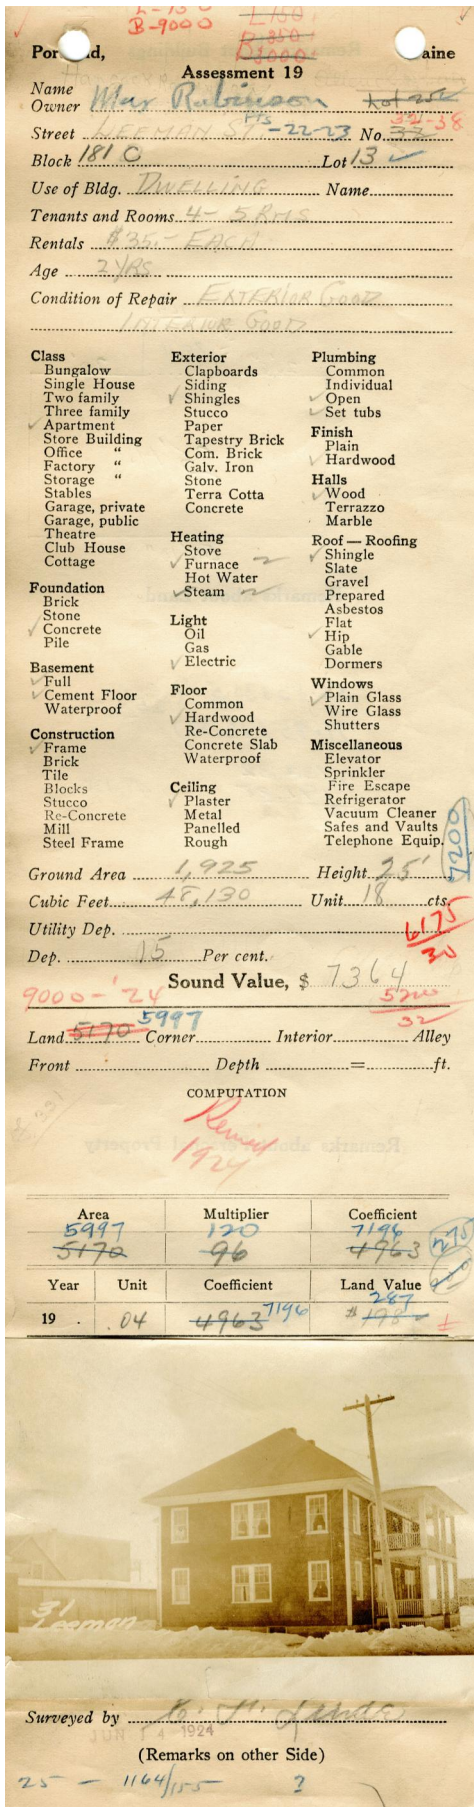 B-9000
L 150
Portland, Maine
Assessment 19
Name
Owner Max Rubinson Lot 252
Street LEEMAN ST PTS -22-23 No. 33 32-38
Block 181 C Lot 13 ✓
Use of Bldg. DWELLING Name
Tenants and Rooms 4 - 5 RMS
Rentals $35.- EACH
Age 2 YRS
Condition of Repair EXTERIOR GOOD
INTERIOR GOOD
Class
Bungalow
Single House
Two family
Three family
✓ Apartment
Store Building
Office "
Factory "
Storage "
Stables
Garage, private
Garage, public
Theatre
Club House
Cottage
Foundation
Brick
Stone
✓ Concrete
Pile
Basement
✓ Full
✓ Cement Floor
Waterproof
Construction
✓ Frame
Brick
Tile
Blocks
Stucco
Re-Concrete
Mill
Steel Frame
Exterior
Clapboards
Siding
✓ Shingles
Stucco
Paper
Tapestry Brick
Com. Brick
Galv. Iron
Stone
Terra Cotta
Concrete
Heating
Stove
✓ Furnace
Hot Water
✓ Steam
Light
Oil
Gas
✓ Electric
Floor
Common
✓ Hardwood
Re-Concrete
Concrete Slab
Waterproof
Ceiling
✓ Plaster
Metal
Panelled
Rough
Plumbing
Common
Individual
✓ Open
✓ Set tubs
Finish
Plain
✓ Hardwood
Halls
✓ Wood
Terrazzo
Marble
Roof — Roofing
✓ Shingle
Slate
Gravel
Prepared
Asbestos
Flat
✓ Hip
Gable
Dormers
Windows
✓ Plain Glass
Wire Glass
Shutters
Miscellaneous
Elevator
Sprinkler
Fire Escape
Refrigerator
Vacuum Cleaner
Safes and Vaults
Telephone Equip.
7200
Ground Area 1,925 Height 25'
Cubic Feet 48,130 Unit 18 cts.
Utility Dep. 6175
Dep. 15 Per cent. 30
Sound Value, $ 7364
9000-'24 5200
5997 32
Land 5170 Corner Interior Alley
Front Depth = ft.
COMPUTATION
1924
Area Multiplier Coefficient
5997 120 7196 275
5170 96 4963
Year Unit Coefficient Land Value
287
19 . .04 4963 7196 $ 198
31
Leeman
Surveyed by
1924
(Remarks on other Side)
25 - 1164/155 - ?